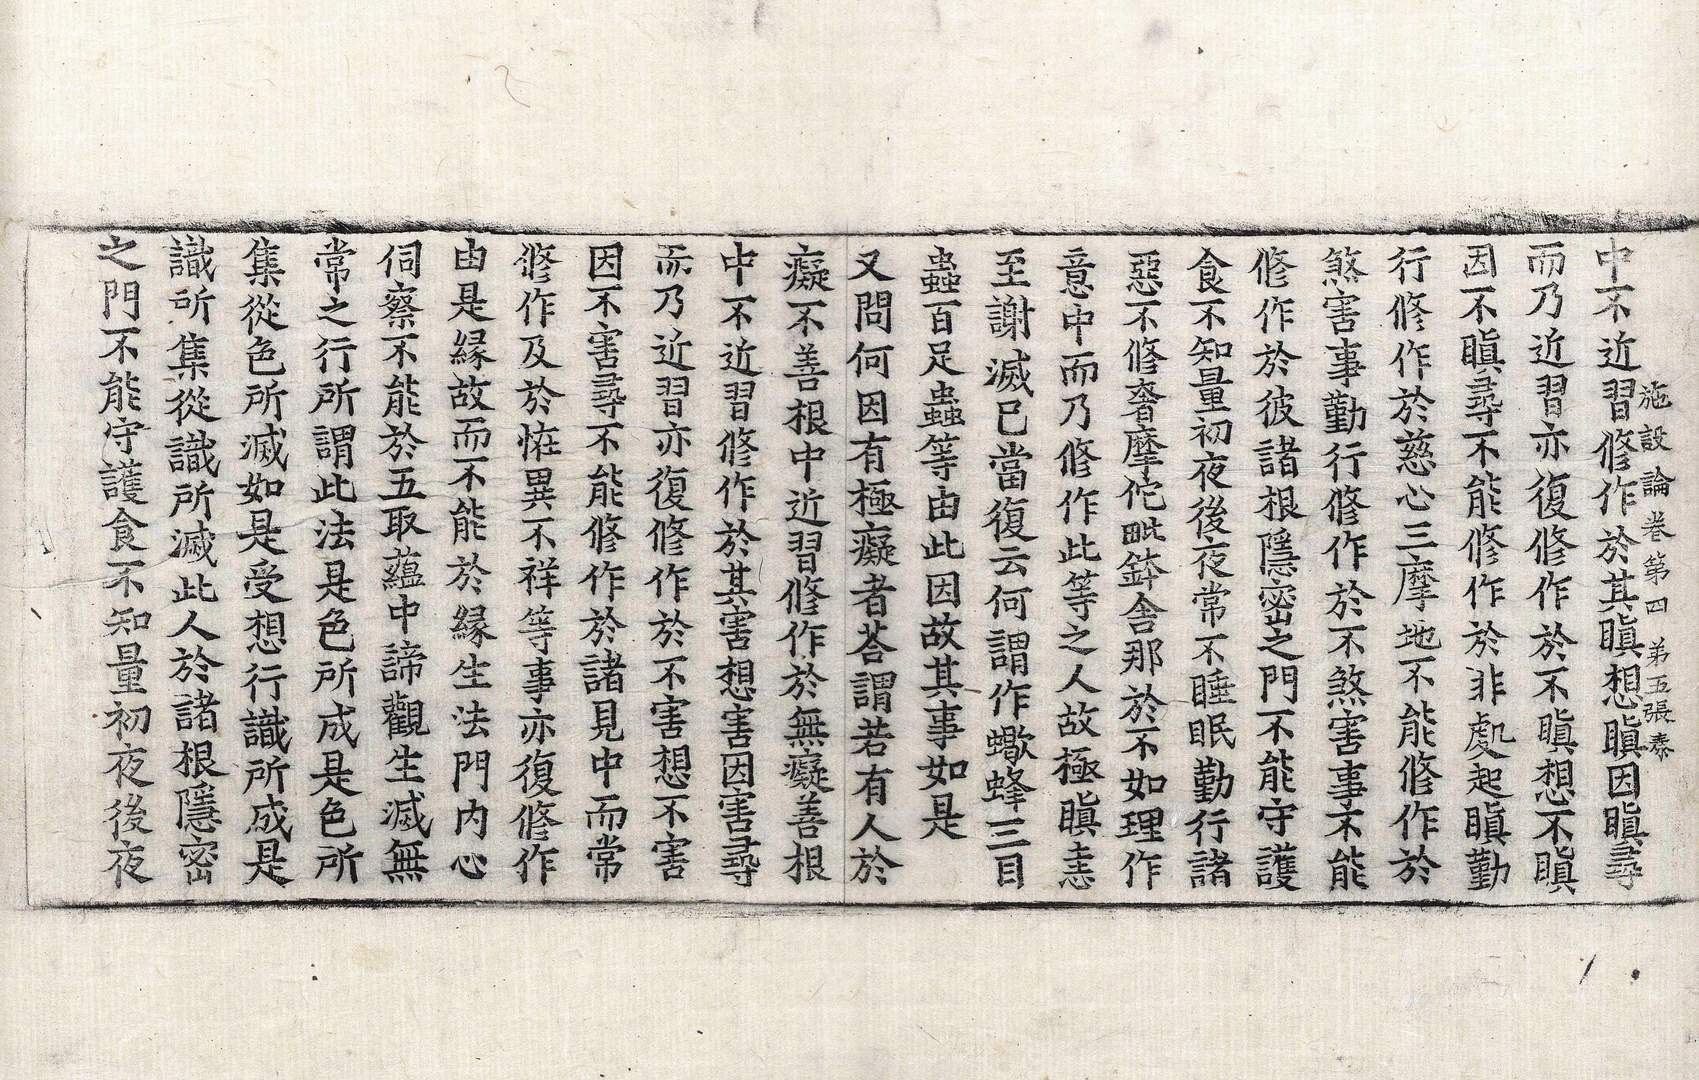 施設論卷第四 第五張 泰
中不近習修作於其瞋想瞋因瞋尋
而乃近習亦復修作於不瞋想不瞋
因不瞋尋不能修作於非處起瞋勤
行修作於慈心三摩地不能修作於
煞害事勤行修作於不煞害事不能
修作於彼諸根隱密之門不能守護
食不知量初夜後夜常不睡眠勤行諸
惡不修奢摩佗毗鉢舍那於不如理作
意中而乃修作此等之人故極瞋恚
至謝滅已當復云何謂作蠍蜂三目
蟲百足蟲等由此因故其事如是
又問何因有極癡者荅謂若有人於
癡不善根中近習修作於無癡善根
中不近習修作於其害想害因害尋
而乃近習亦復修作於不害想不害
因不害尋不能修作於諸見中而常
修作及於恠異不祥等事亦復修作
由是緣故而不能於緣生法門內心
伺察不能於五取蘊中諦觀生滅無
常之行所謂此法是色所成是色所
集從色所滅如是受想行識所成是
識所集從識所滅此人於諸根隱密
之門不能守護食不知量初夜後夜